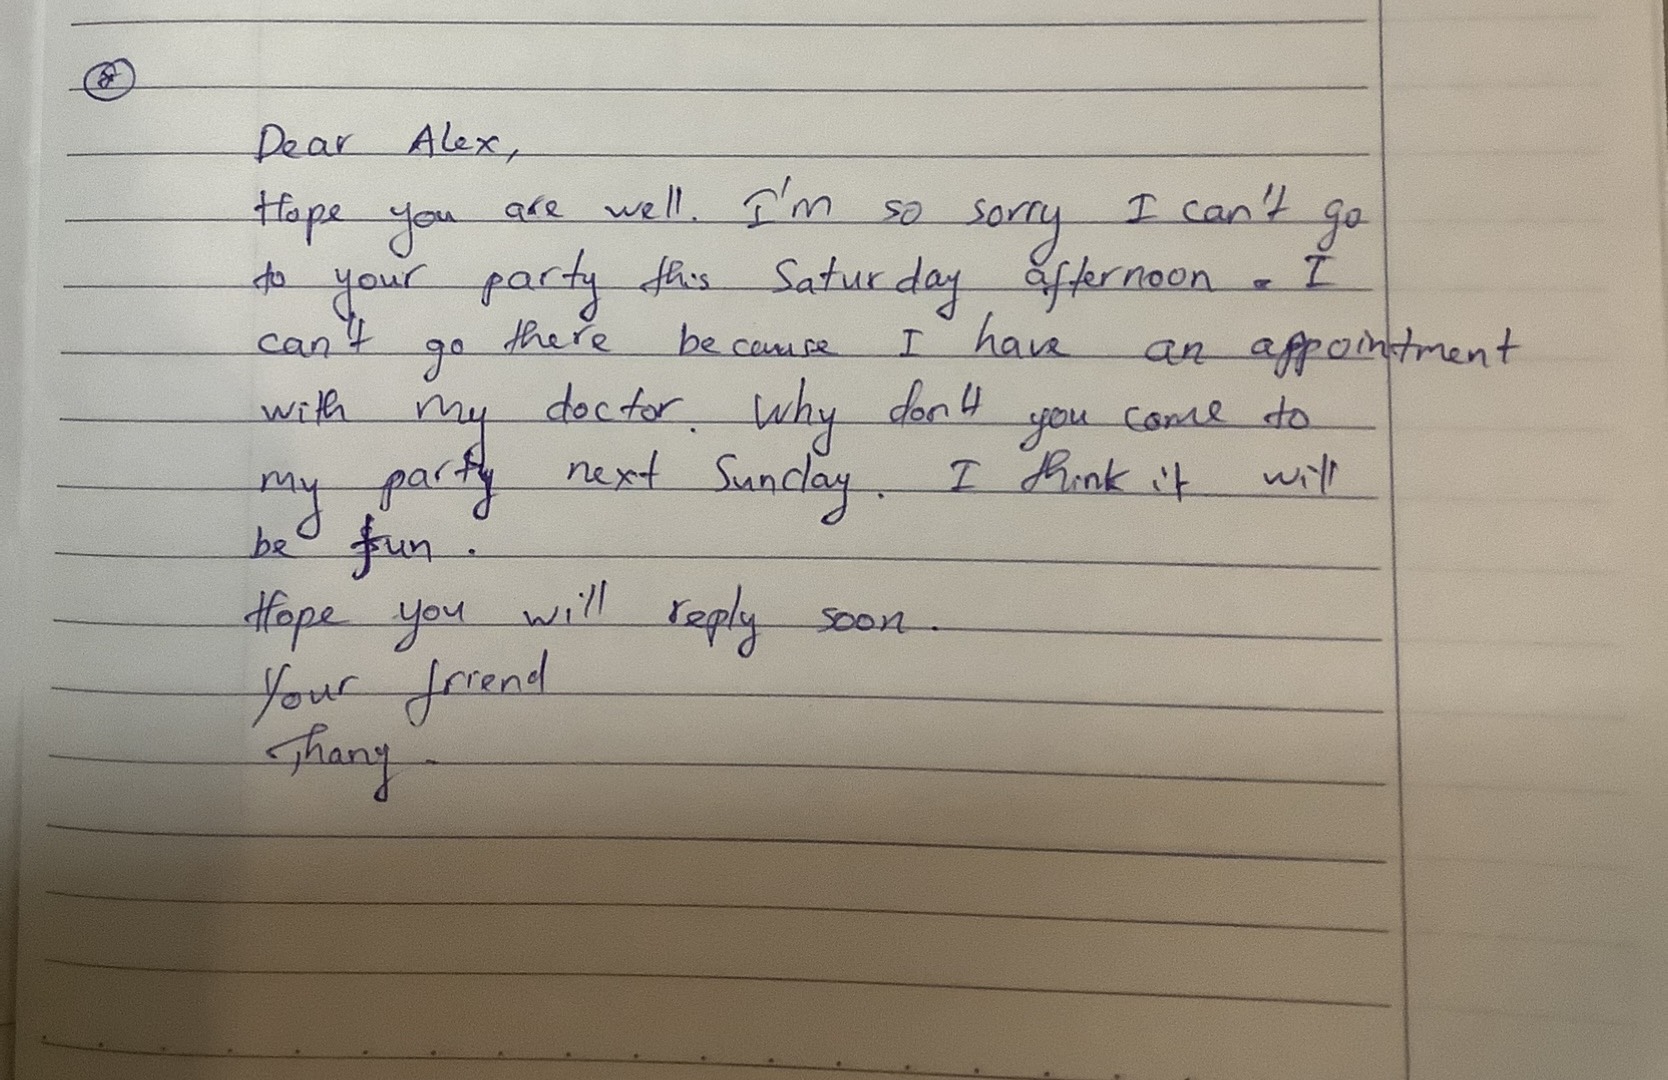 Dear Alex,
Hope you are well. I'm so sorry I can't go
to your party this Saturday afternoon. I
can't go there because I have an appointment
with my doctor. Why don't you come to
my party next Sunday. I think it will
be fun.
Hope you will reply soon.
Your friend
Thang.